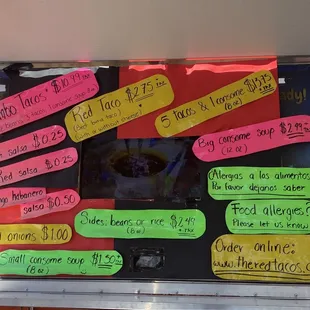 Tacos $10.99
Red Taco $2.75
5 Tacos & 1 consome $13.75
(8 oz)
Big consome soup $2.99
(12 oz)
salsa $0.25
Red salsa $0.25
habanero
salsa $0.50
onions $1.00
Small consome soup $1.50
(8 oz)
Sides, beans or rice $2.49
(8 oz)
Alergias a los alimentos
Por favor dejanos saber
Food allergies?
Please let us know
Order online:
www.theredtacos.co